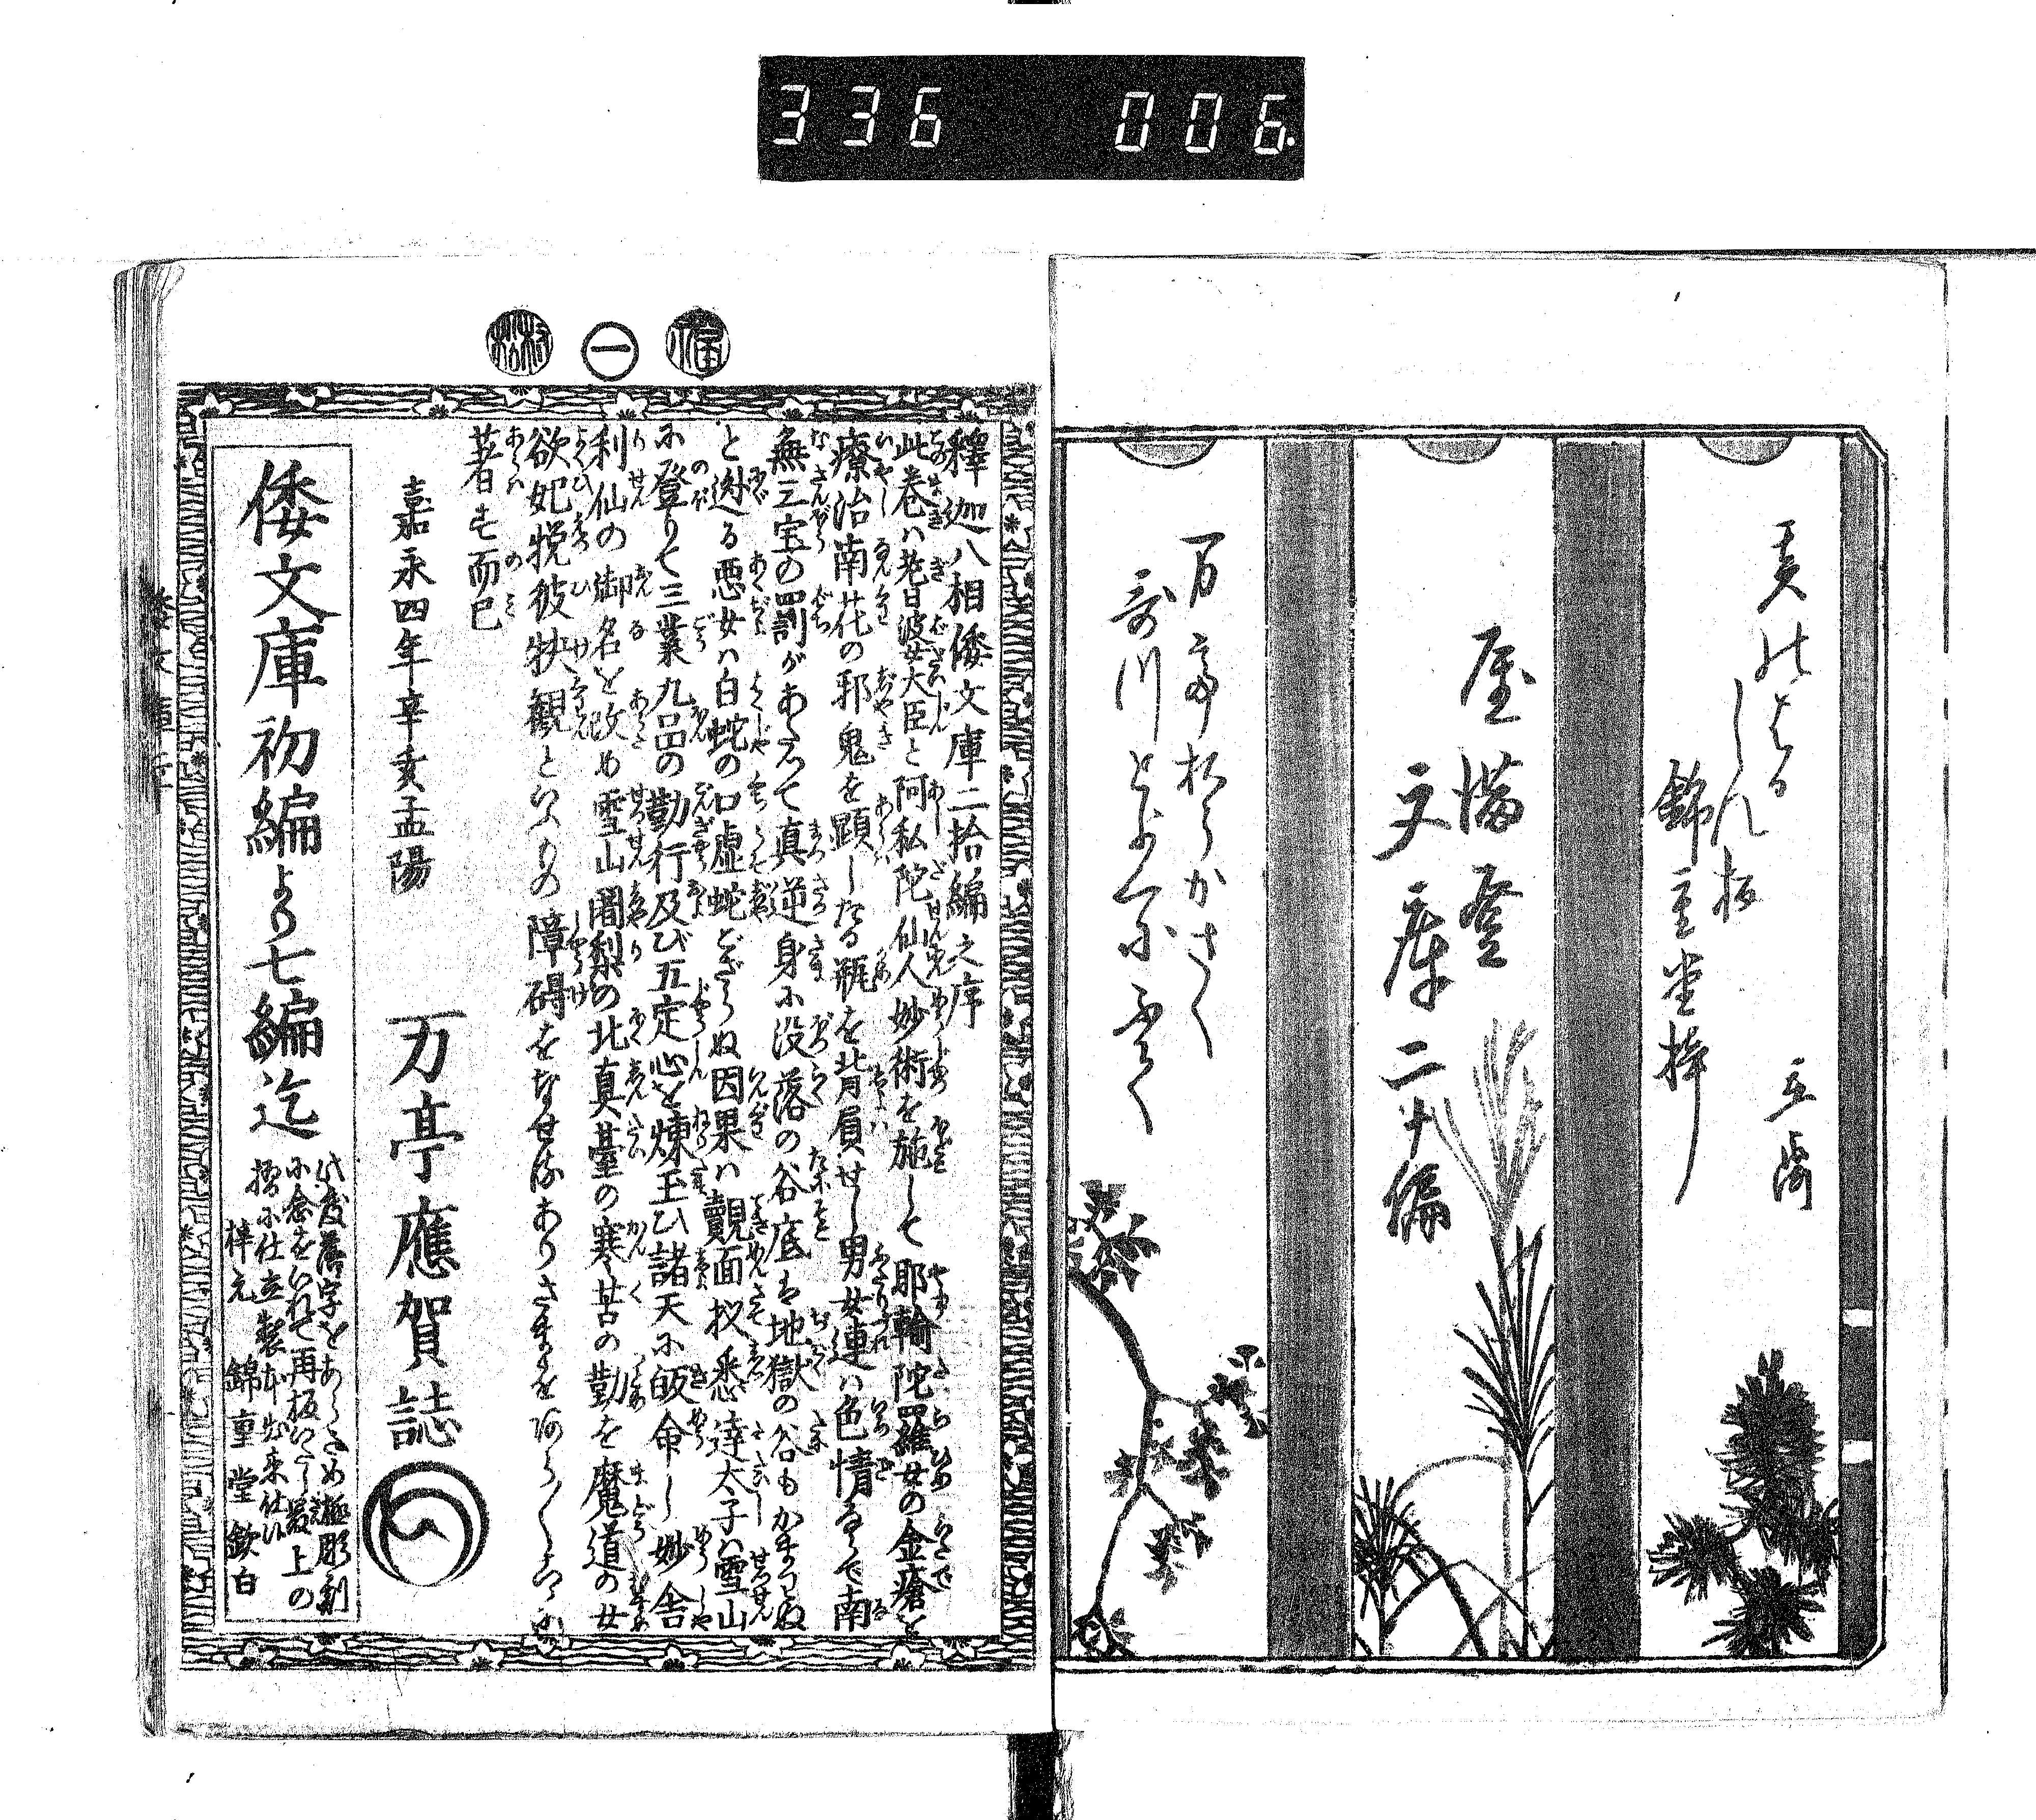 336 006
亥のはる
しん板
錦重堂梓
上帙
屋満登
文庫二十編
万亭おうがさく
哥川とよくに画
福
一
村松
釋迦八相倭文庫二拾編之序
此巻ハ耆婆大臣と阿私陀仙人妙術を施して耶輸陀羅女の金瘡を
療治南花の邪鬼を顕したる瓶を背負せし男女連ハ色情ゆゑで南
無三宝の罰があたつて真逆身に没落の谷底は地獄の谷もかまはぬ
と迯る悪女ハ白蛇の口虚蛇でござらぬ因果ハ覿面扨悉達太子ハ雪山
に登りて三業九品の勤行及び五定心を煉玉ひ諸天に皈命し妙舎
利仙の御名を改め雪山闍梨の北真臺の寒苦の勤を魔道の女
欲妃悦彼狭観といふもの障碍をなせるありさまをあら〳〵こゝに
著す而已
嘉永四年辛亥孟陽
万亭應賀誌
倭文庫初編より七編迄
此度舊字をあらため極彫刻
に念をいれて再板いたし最上の
摺に仕立製本出来仕候
梓元 錦重堂欽白
倭文庫二十